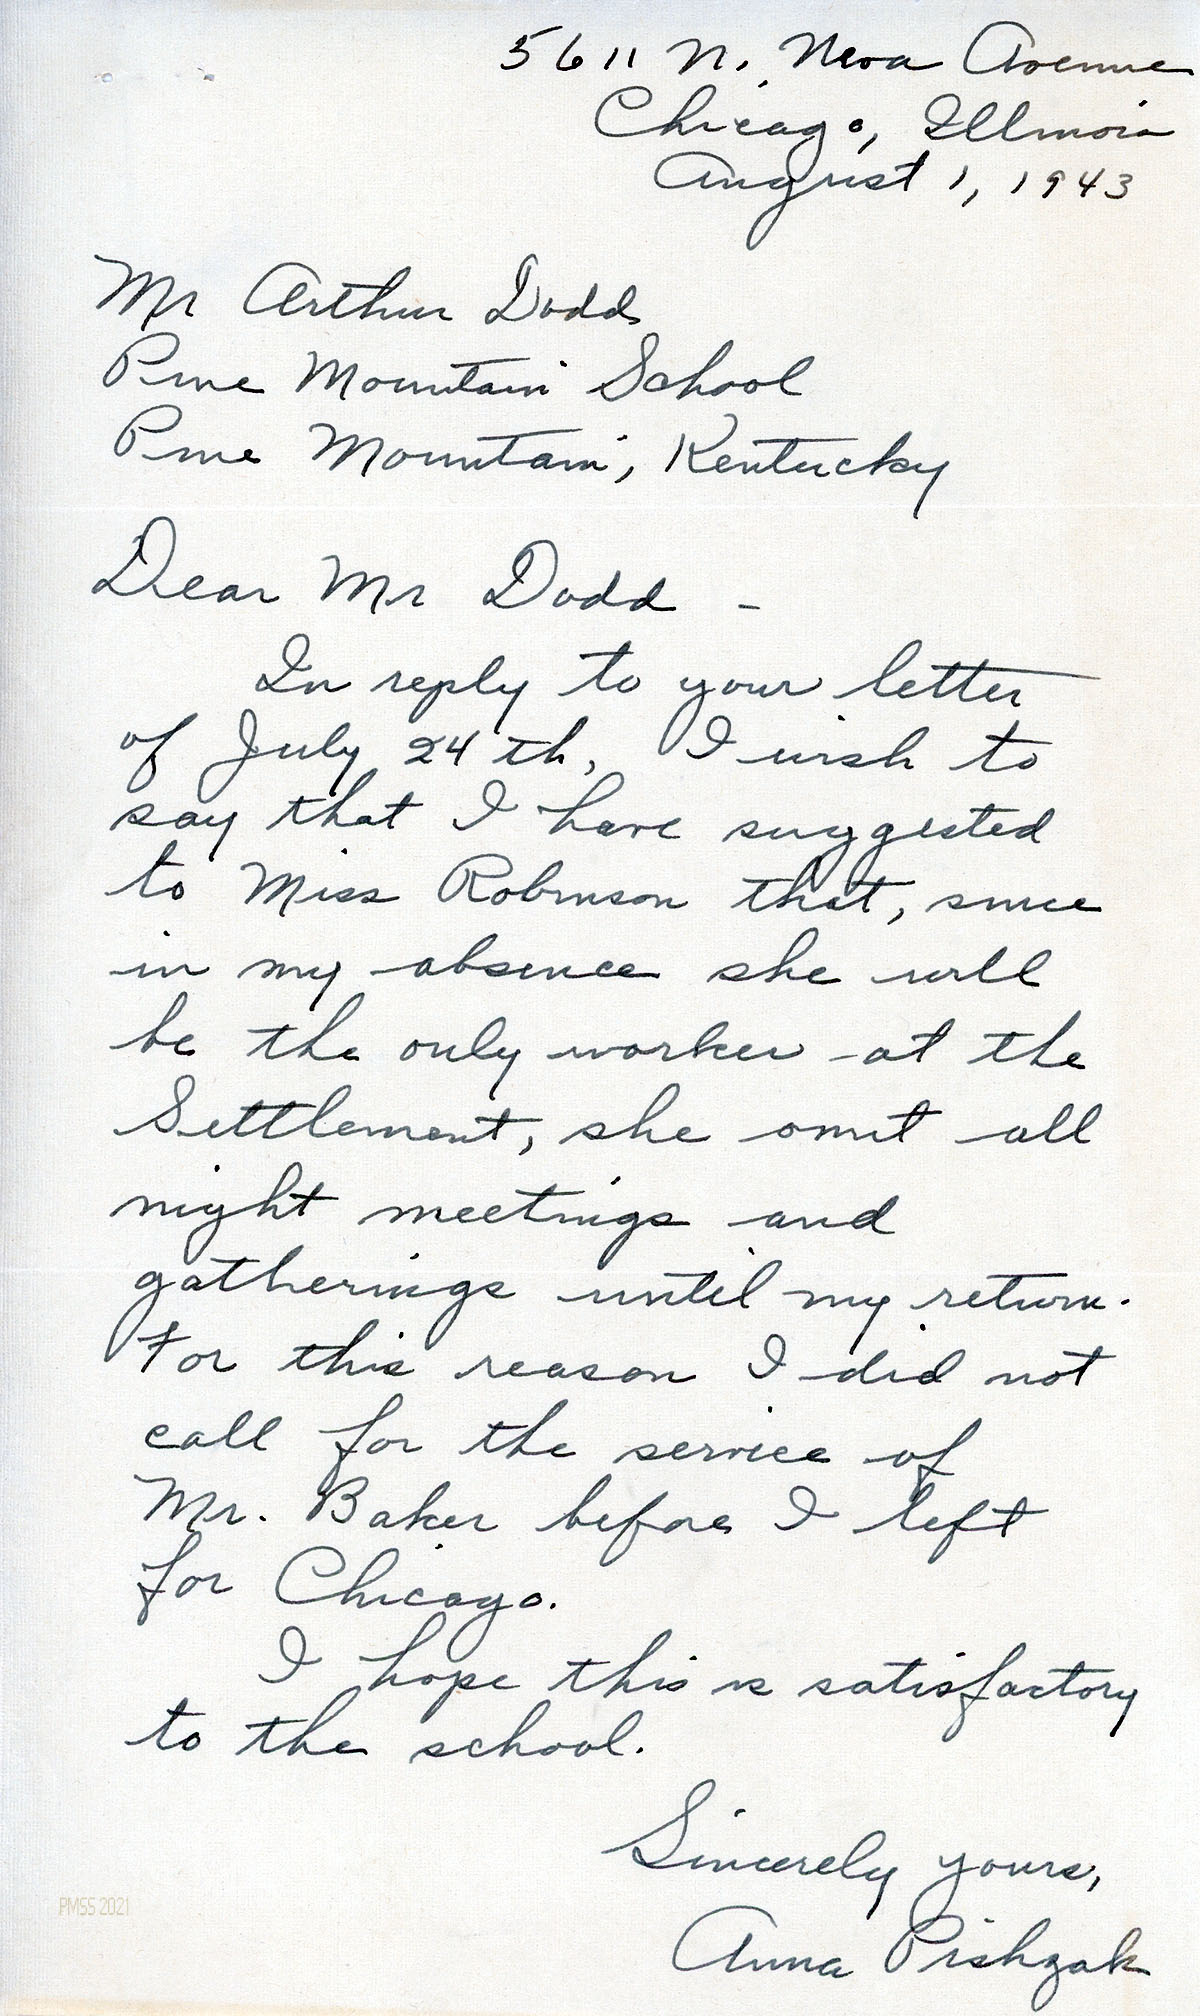 5611 N. Neva Avenue
Chicago, Illinois
August 1, 1943
Mr Arthur Dodd
Pine Mountain School
Pine Mountain, Kentucky
Dear Mr Dodd -
In reply to your letter
of July 24 th, I wish to
say that I have suggested
to Miss Robinson that, since
in my absence she will
be the only worker at the
Settlement, she omit all
night meetings and
gatherings until my return.
For this reason I did not
call for the service of
Mr. Baker before I left
for Chicago.
I hope this is satisfactory
to the school.
Sincerely yours,
Anna Pishzak
PMSS 2021